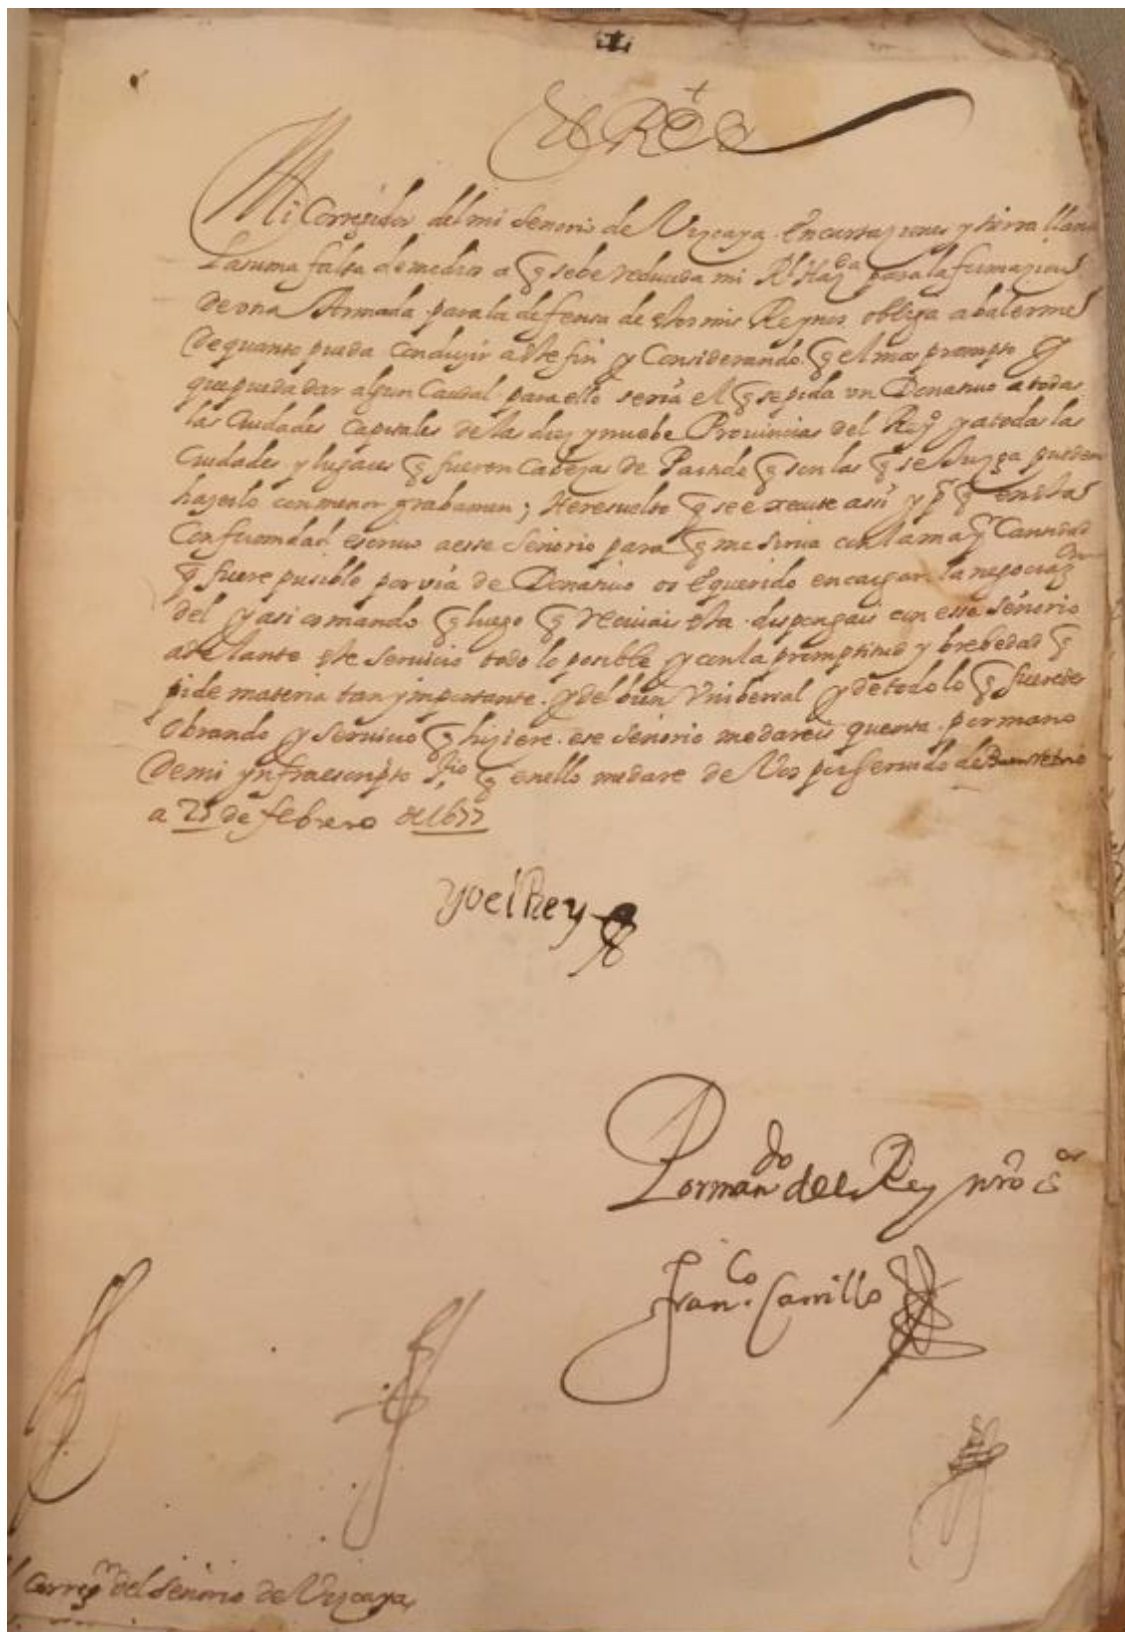 El Rey
Mi Corregidor del mi Senorio de Vizcaya Encartaziones y tierra llana
La suma falta de medios a q̃ sebe reduzida mi Rl Haz.da para la formazion
de vna Armada para la defensa de estos mis Reynos obliga a balerme
de quanto pueda Conduzir a este fin y Considerando q̃ el mas prompto
que pueda dar algun Caudal para ello seria el q̃ se pida vn Donatiuo a todas
las Ciudades Capitales de las diez y nuebe Prouincias del Reyº y a todas las
Ciudades y lugares q̃ fueren Cabezas de Partido q̃ son las q̃ se Juzga pueden
hazerlo con menor grabamen; He resuelto q̃ se execute assi y pª q̃ en esta
Conformidad escriuo a esse Señorio para q̃ me sirua con la maȳr Cantidad
q̃ fuere pusible por via de Donatiuo os E querido encargar la negociazon
del y asi os mando q̃ luego q̃ reciuais esta dispongais con esse señorio
adelante este seruicio todo lo posible y con la promptitud y brebedad q̃
pide materia tan ymportante y del bien Vnibersal y de todo lo q̃ fueredes
obrando y seruicio q̃ hiziere ese Señorio me dareis quenta por mano
de mi ynfraescripto srio q̃ en ello me dare de Vos por seruido de Buen retiro
a 25 de febrero de 1677
Yo el Rey
Por mando del Rey nrō Sor
Franco. Carrillo
Corregr del Señorio de Vizcaya